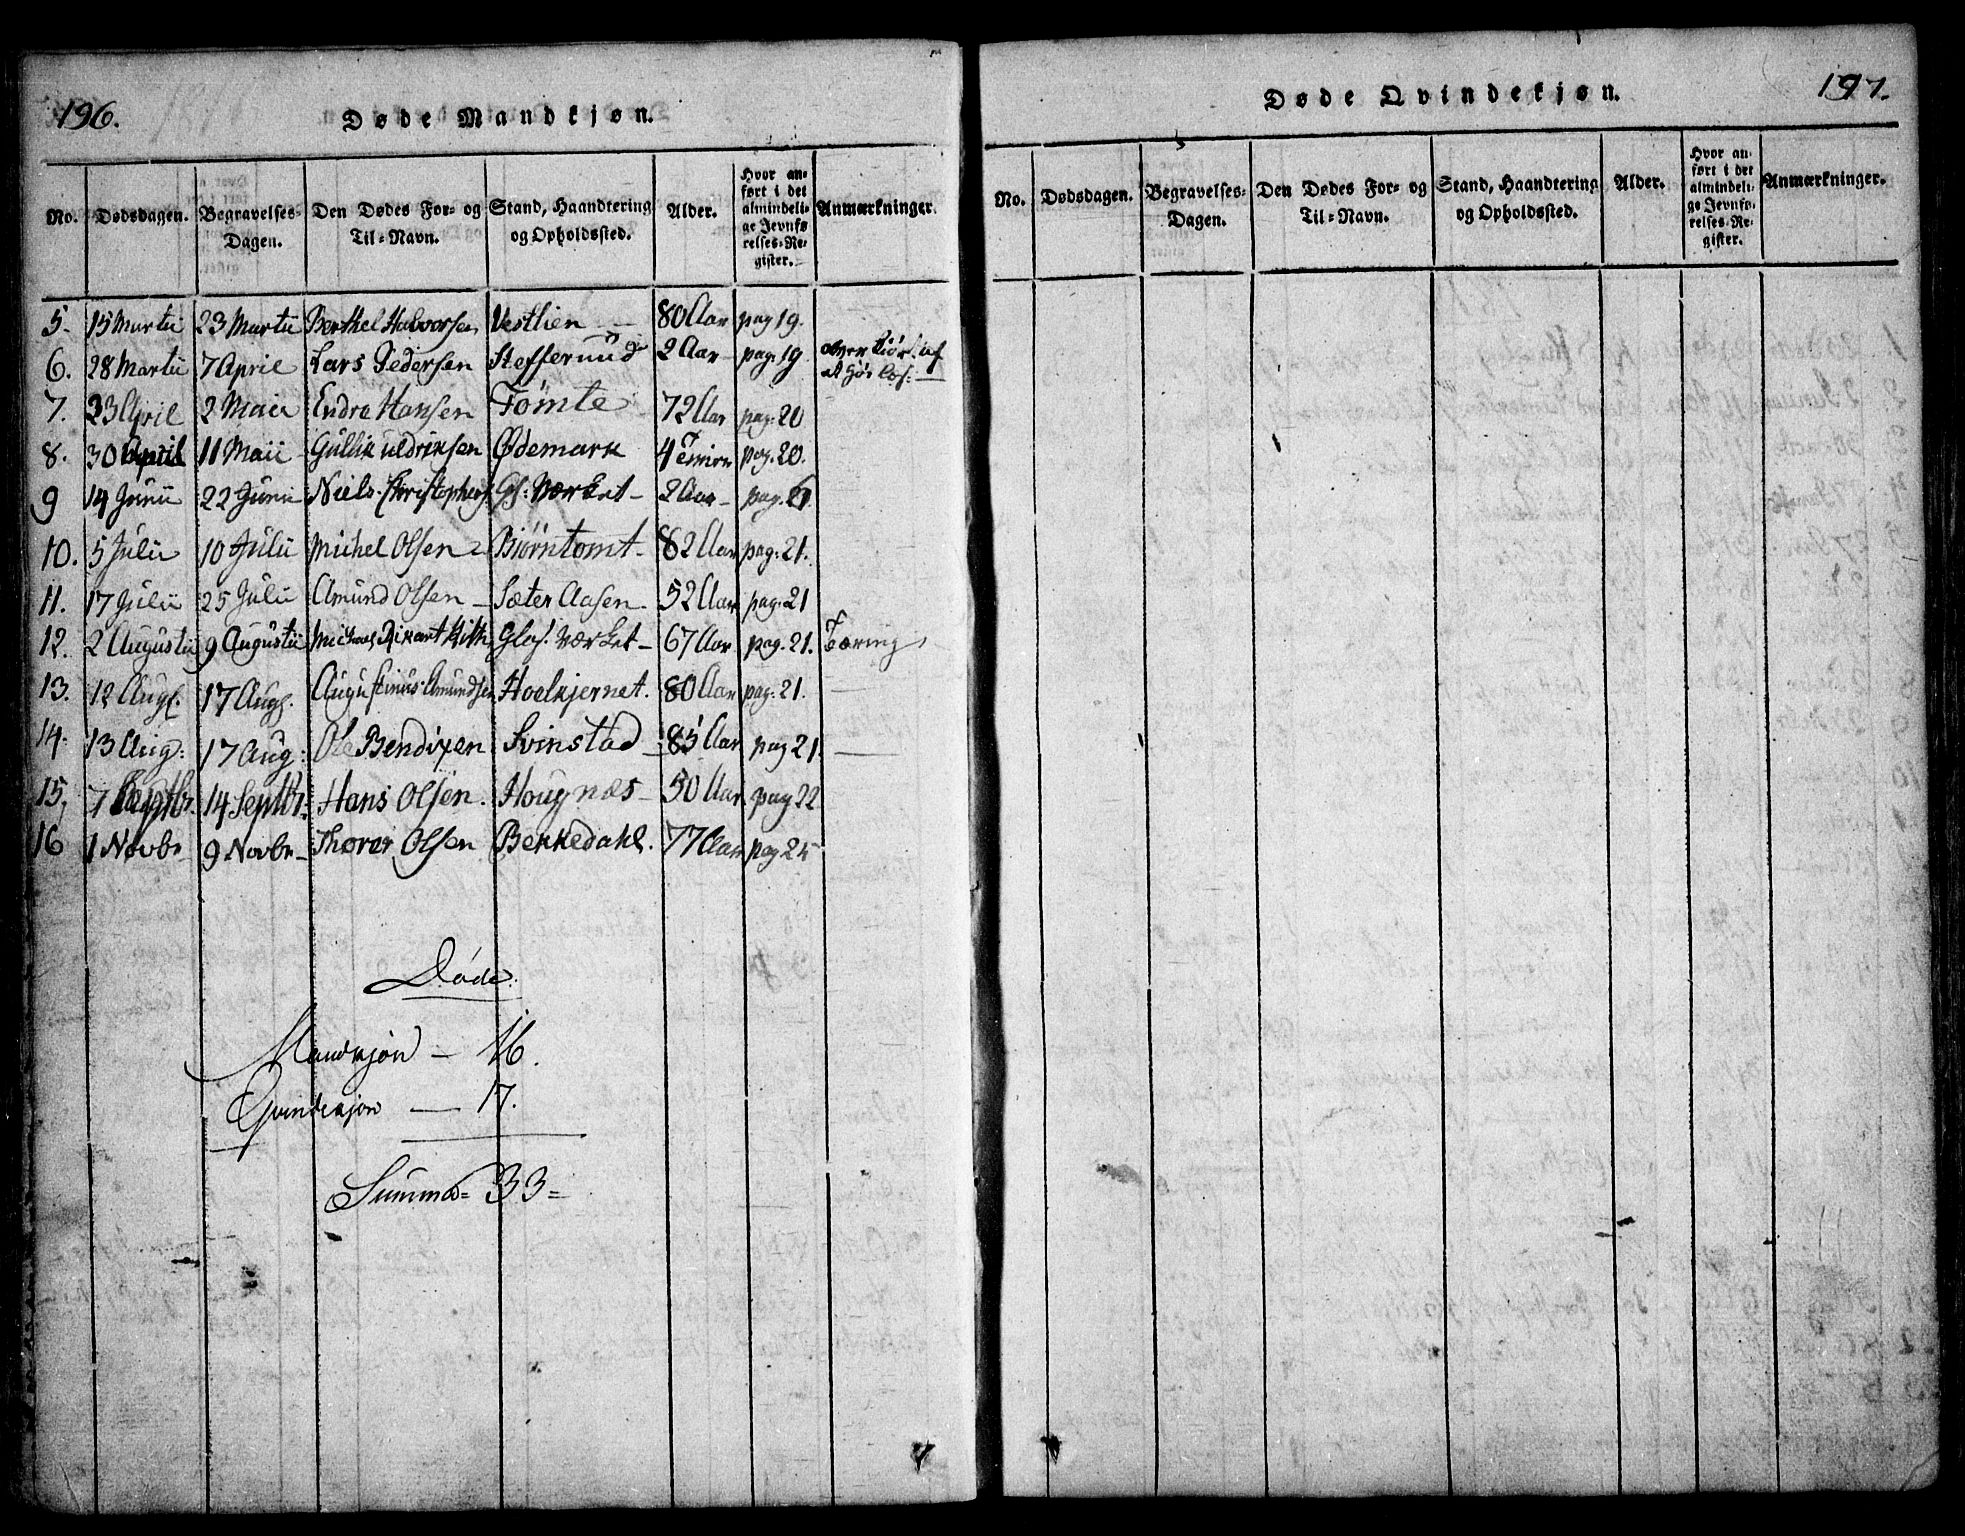 196.
Døde Mandkjøn.
No. Dødsdagen. Begravelses-Dagen. Den Dødes For- og Til-Navn. Stand, Haandtering og Opholdssted. Alder. Hvor anført i det almindelige Jevnførelses-Register. Anmærkninger.
5- 15 Martii 23 Martii Berthel Halvorsen Vestlien 80 Aar pag 19.
6. 28 Martii 7 April Lars Pedersen Stefferud 2 Aar pag: 19
7. 23 April 2 Maii Endre Hansen Tømte 72 Aar pag: 20
8. 30 April 11 Maii Gullik Ødemark 4 pag. 20.
9 14 Junii 22 Junii Niels Christophers. Gl: Værket 2 Aar pag. 21
10. 5 Julii 10 Julii Michel Olsen Bjørntomt 82 Aar pag: 21.
11. 17 Julii 25 Julii Amund Olsen Sæter Aasen 52 Aar pag: 21
12. 2 Augustii 9 Augustii Glas. Værket 67 Aar pag. 21. Tæring
13. 12 Aug. 17 Aug. Augustinus Amundsen Hoelkjernet. 80 Aar pag: 21.
14. 13 Aug: 17 Aug: Ole Bendixen Svinstad 85 Aar pag 21.
15, 7 Septbr. 14 Septbr. Hans Olsen. Hougnæs 50 Aar pag 22
16 1 Novbr 9 Novbr Thorer Olsen Bekkedahl. 77 Aar pag 25
Døde:
Mandkjøn — 16.
Qvindekjøn — 17.
Summa = 33 =
197.
Døde Qvindekjøn.
No. Dødsdagen. Begravelses-Dagen. Den Dødes For- og Til-Navn. Stand, Haandtering og Opholdssted. Alder. Hvor anført i det almindelige Jevnførelses-Register. Anmærkninger.